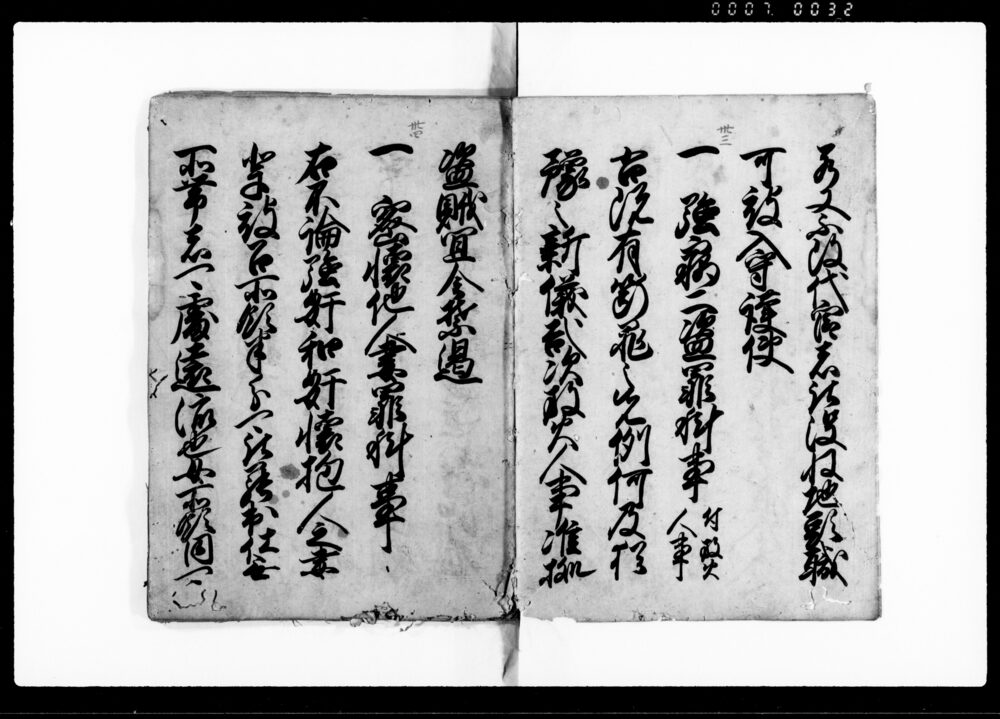 0007 0032
若又不改代官者被没収地頭職
可被入守護使
卅三
一 強竊二盗罪科事 付放火人事
右既有断罪之先例何及猶
豫之新儀哉次放火人事准拠
盗賊宜令禁遏
卅四
一 密懐他人妻罪科事
右不論強奸和奸懐抱人之妻
輩被召所領半分可被罷出仕無
所帯者可處遠流也女所領同可